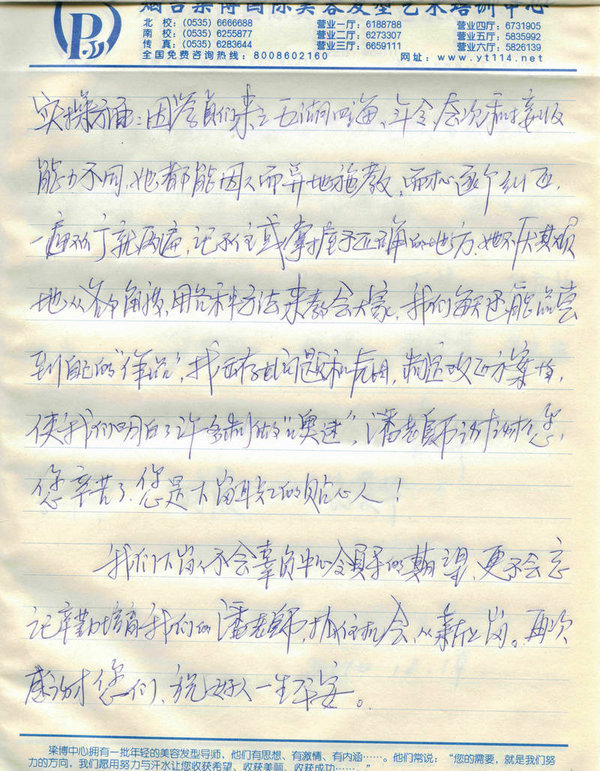 烟台梁博国际美容发型艺术培训中心
北校：(0535) 6666688 营业一厅：6188788 营业四厅：6731905
南校：(0535) 6255877 营业二厅：6273307 营业五厅：5835992
传真：(0535) 6283644 营业三厅：6659111 营业六厅：5826139
全国免费咨询热线：8008602160 网址：www.yt114.net
实操方面：因学员们来之五湖四海、年令、层次和接收
能力不同，她都能因人而异地施教，耐心逐个纠正，
一遍不了就两遍，记不住或掌握不正确的地方，她不厌其烦
地从各个角度，用各种方法来教会大家，我们每天还能品尝
到自己的"作品"，找出存在问题和原因，制定改正方案等，
使我们明白了许多制做"奥迷"，潘老师谢谢您，
您辛苦了，您是下岗职工的贴心人！
我们下岗人不会辜负中心领导的期望，更不会忘
记辛勤培育我们的潘老师，抓住机会，从新上岗。再次
感谢您们，祝好人一生平安。
梁博中心拥有一批年轻的美容发型导师，他们有思想、有激情、有内涵……。他们常说："您的需要，就是我们努
力的方向，我们愿用努力与汗水让您收获希望、收获美丽、收获成功……。"